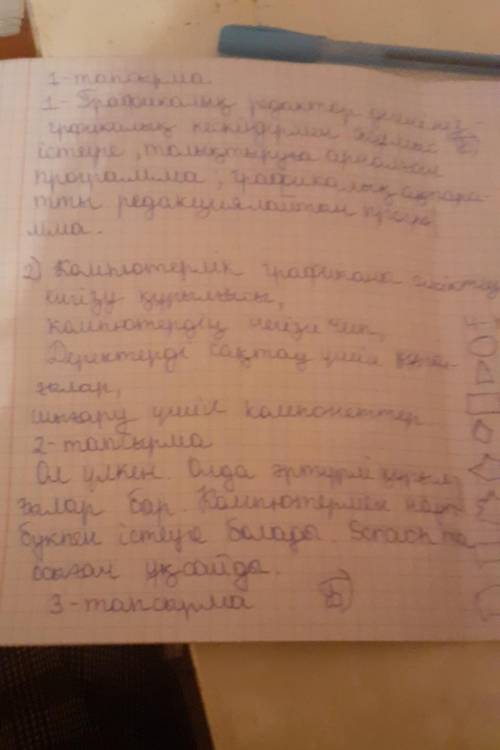 1-тапсырма
1- Графикалық редактор дегеніміз -
графикалық кескіндермен жұмыс
істеуге, толықтыруға арналған
программа, графикалық ақпара-
тты редакциялайтын програ
мма.
2) Компютерлік графикана
енгізу құрылғысы,
компютердің негізі чип,
Деректерді сақтад үшін
ғалар,
шығару үшін компонеттер
2-тапсырма
Ол үлкен. Олда әртүрлі құрыл
ғалар бар. Компютермен ноут
букпен істеуге болады. Scrach
ұқсайды.
3-тапсырма Б)